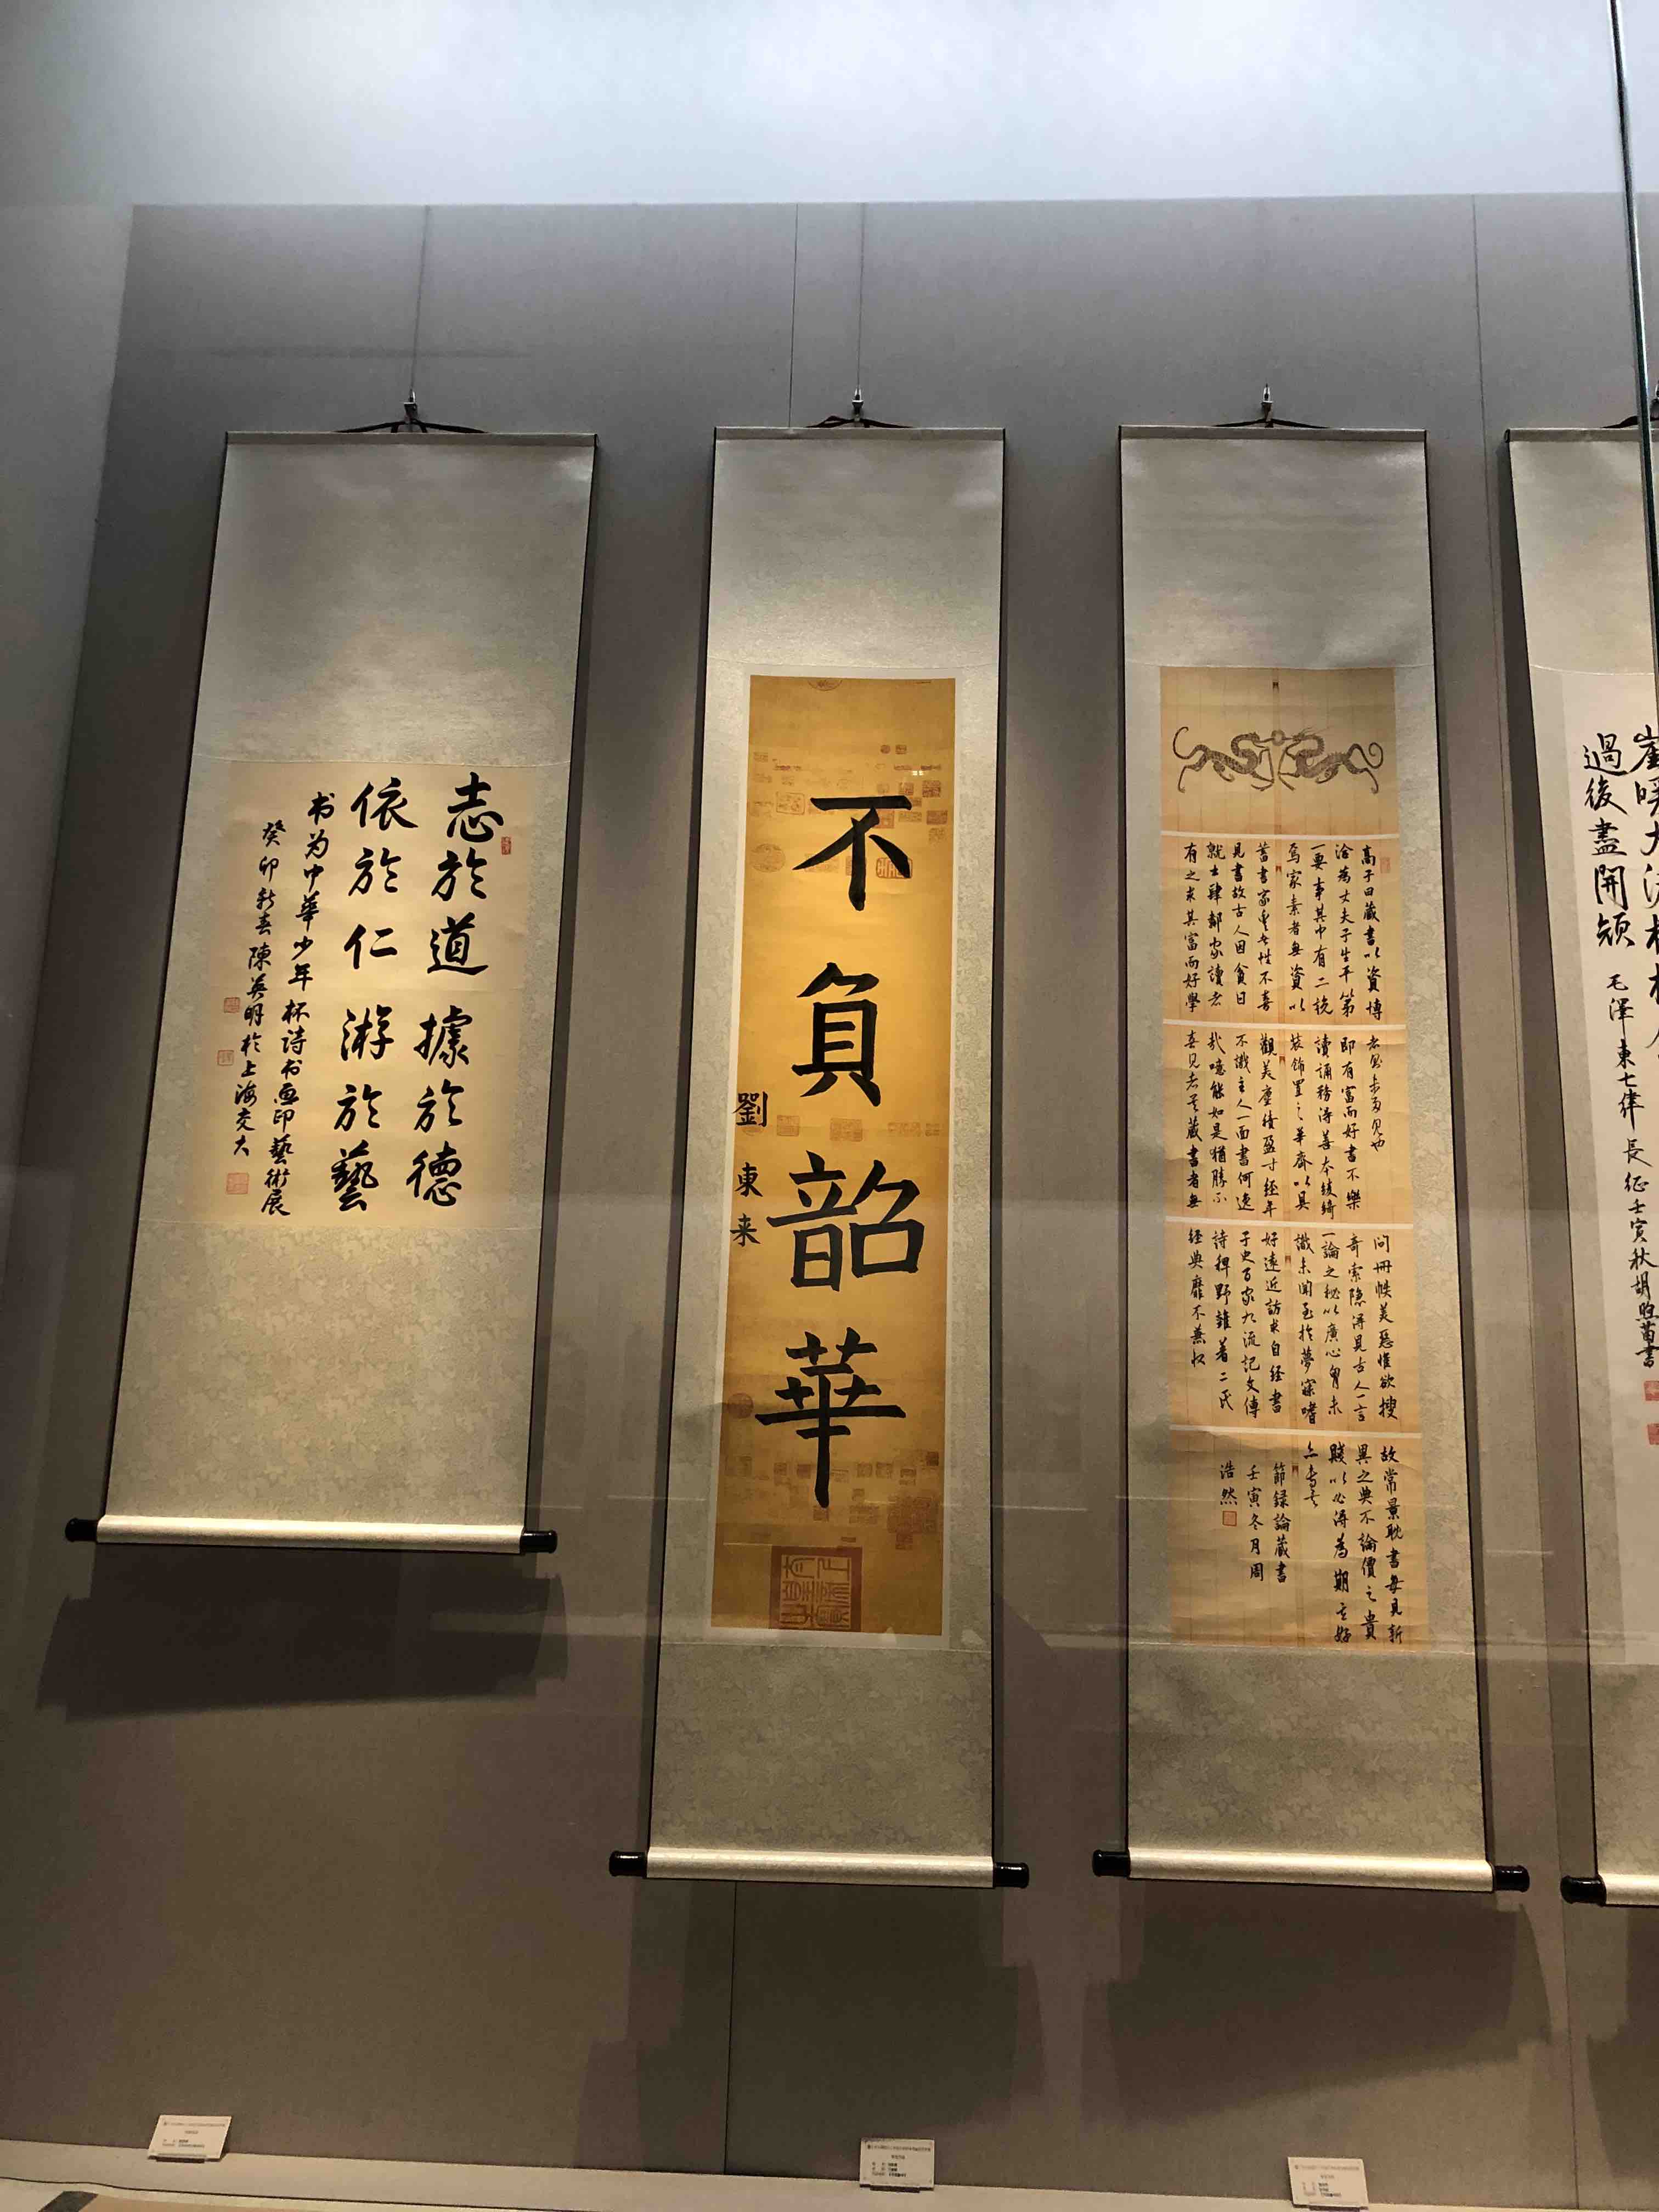 志於道 據於德
依於仁 游於藝
书为中華少年杯诗书画印藝術展
癸卯新春陳英明於上海交大
不負韶華
劉東来
高子曰藏書以資博
洽為丈夫子生平第
一要事其中有二說
焉家素者無資以
蓄書家豊者性不喜
見書故古人因貧日
就書肆鄰家讀者
有之求其富而好學
者則未多見也
即有富而好書不樂
讀誦務得善本綾綺
裝飾置之華齋以具
觀美塵積盈寸經年
不識主人一面書何逸
哉噫能如是猶勝不
喜見者矣藏書者無
问冊帙美惡惟欲搜
奇索隱得見古人一言
一論之秘以廣心胸未
識未聞至於夢寐嗜
好遠近訪求自经書
子史百家九流記文傳
詩稗野雜著二氏
经典靡不兼收
故常景耽書每見新
異之典不論價之貴
賤以必得為期其好
亦專矣
節録論藏書
壬寅冬月周
浩然
過後盡開顏 毛澤東七律 長征 壬寅秋胡